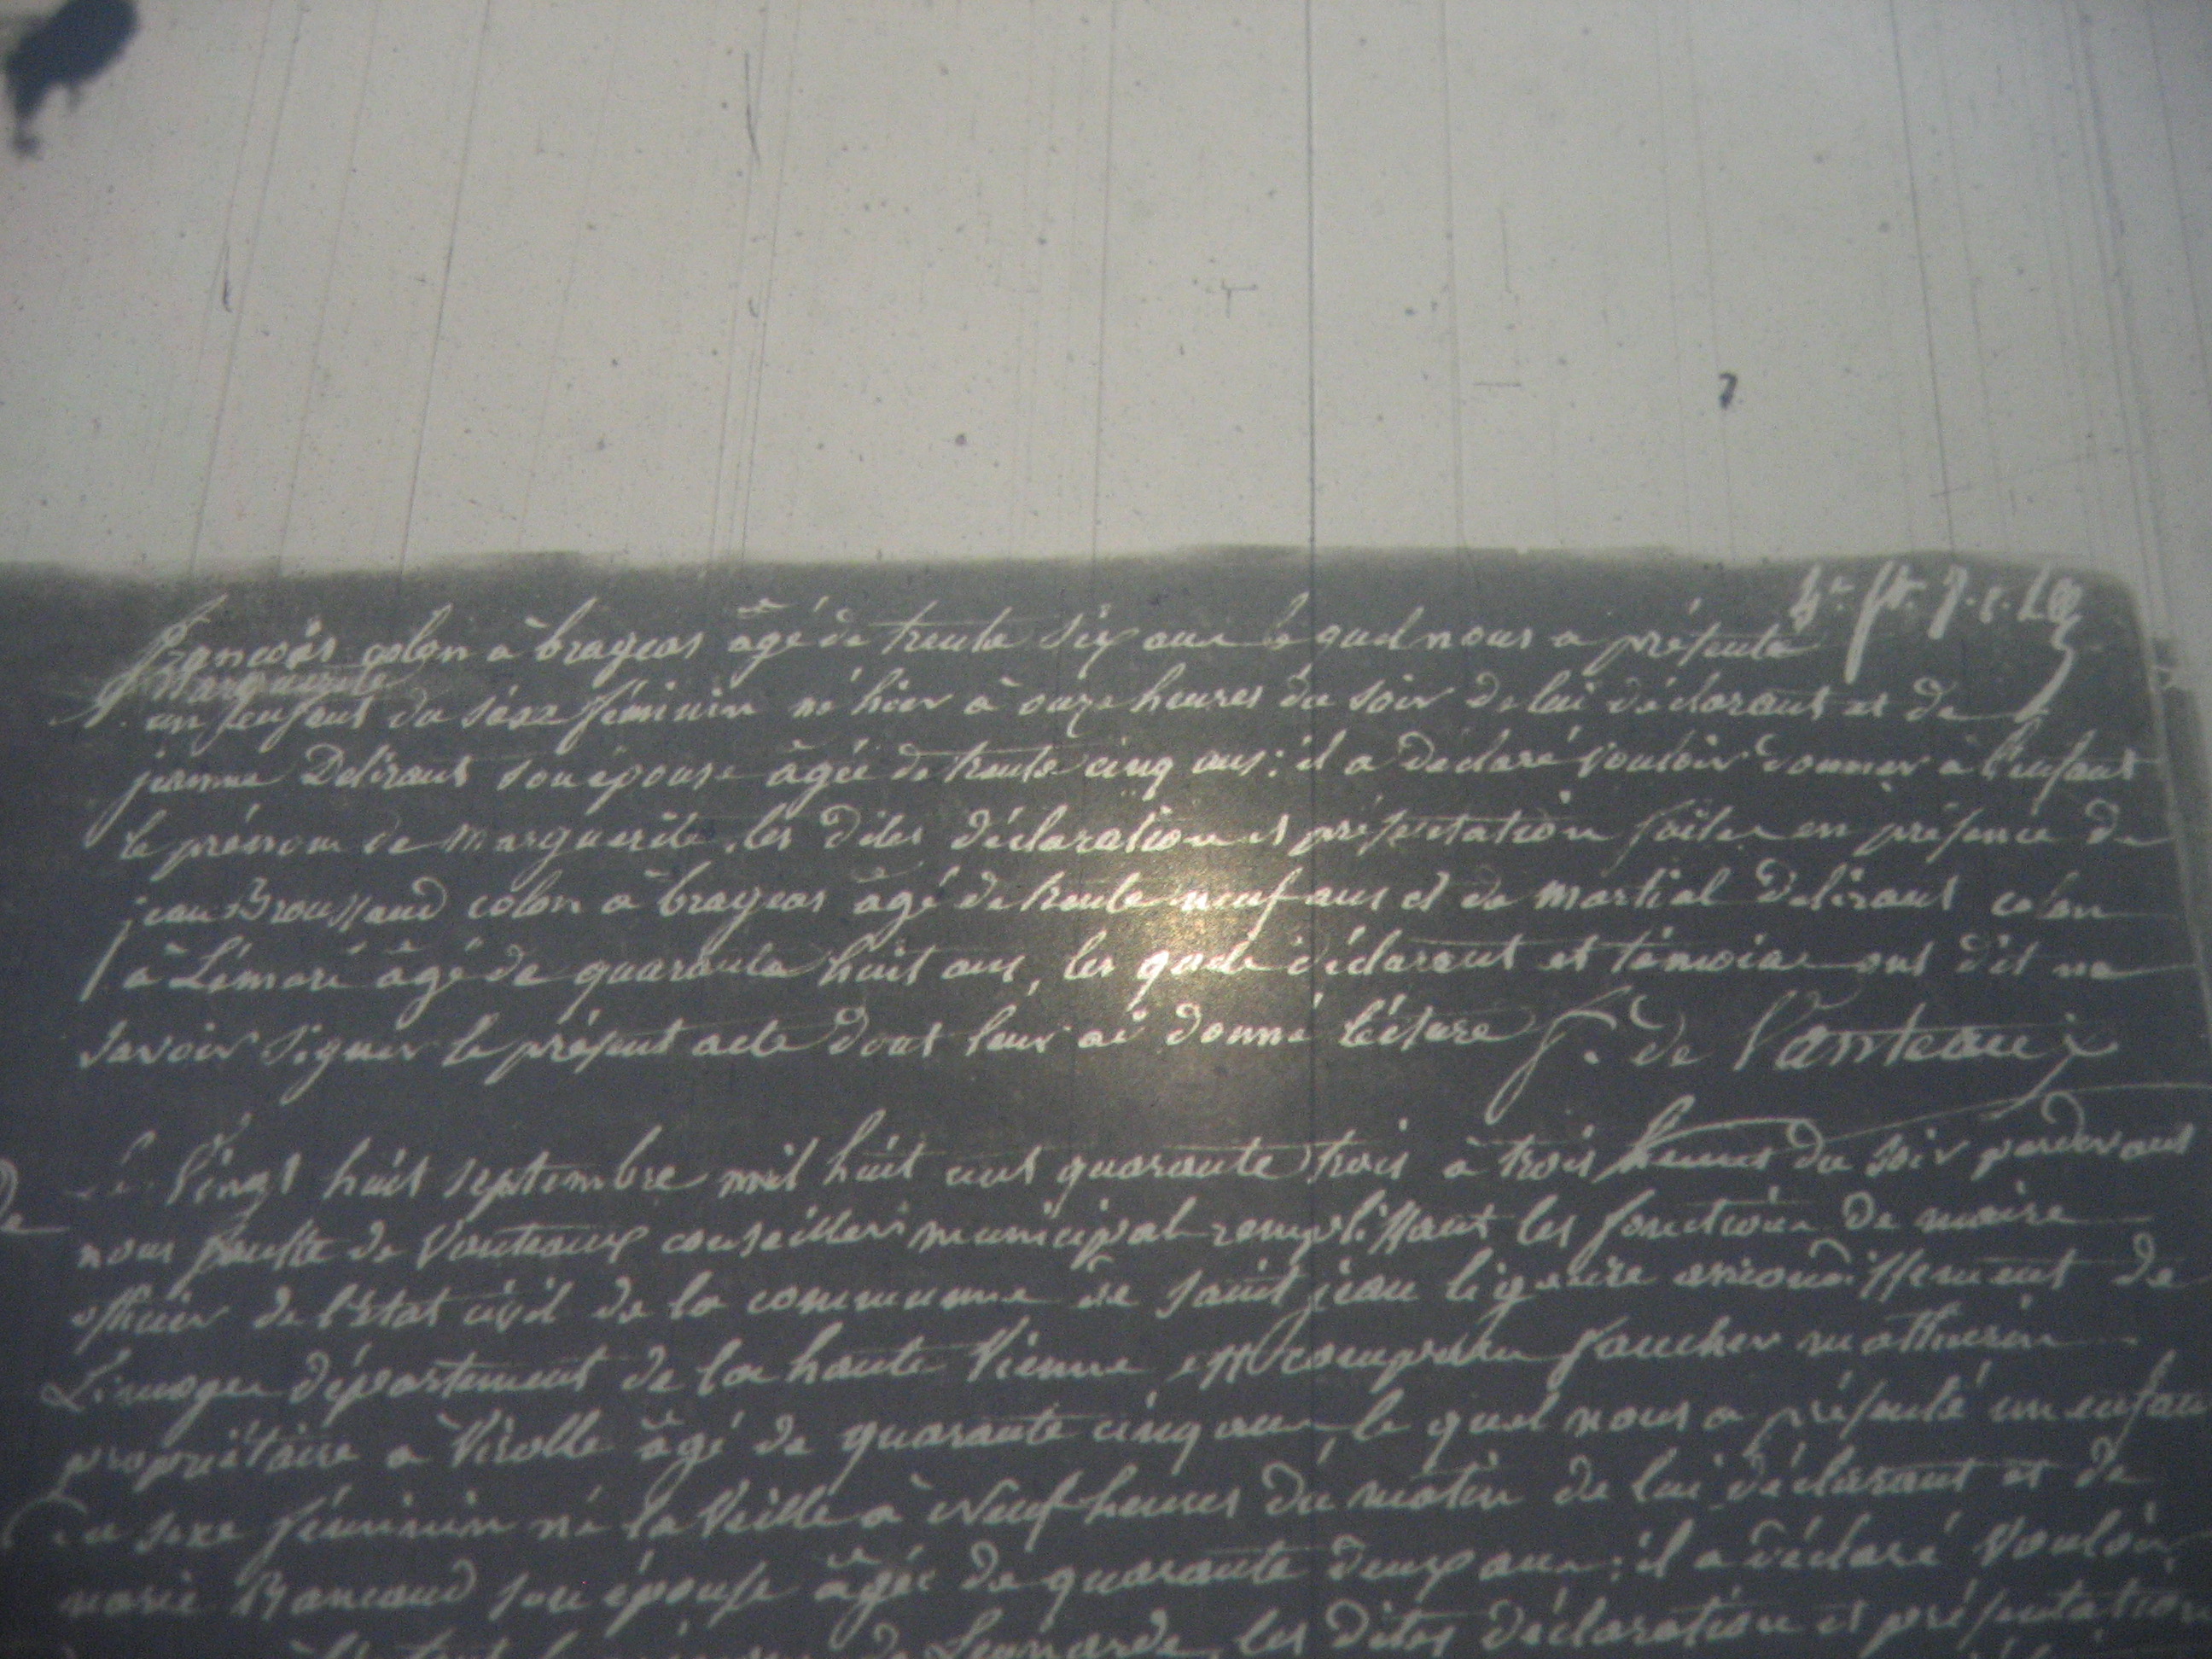 françois colon à brageas âgé de trente six ans le quel nous a présenté
Marguerite
un enfant du séxe féminin né hier à onze heures du soir de lui déclarant et de
jeanne Delirant son épouse âgée de trente cinq ans : il a déclaré vouloir donner à l'enfant
le prénom de Marguerite. les dites déclaration et présentation faites en présence de
jean Broussaud colon à brageas âgé de trente neuf ans et de martial Delirant colon
à Lémaré âgé de quarante huit ans, les quels déclarant et témoins ont dit ne
savoir signer le présent acte dont leur ai donné lécture f. de Vanteaux
Le Vingt huit septembre mil huit cent quarante trois à trois heures du soir pardevant
De
nous de Vanteaux conseiller municipal remplissant les fonctions de maire
officier de l'état civil de la commune de saint jean ligoure arrondissement de
Limoges département de la haute Vienne est comparu faucher mathurin
propriétaire à Virolle âgé de quarante cinq ans, le quel nous a présenté un enfant
du sexe féminin né la Veille à Neuf heures du matin de lui déclarant et de
marie son épouse âgée de quarante deux ans : il a déclaré Vouloir
de Léonarde, les dites déclaration et présentation